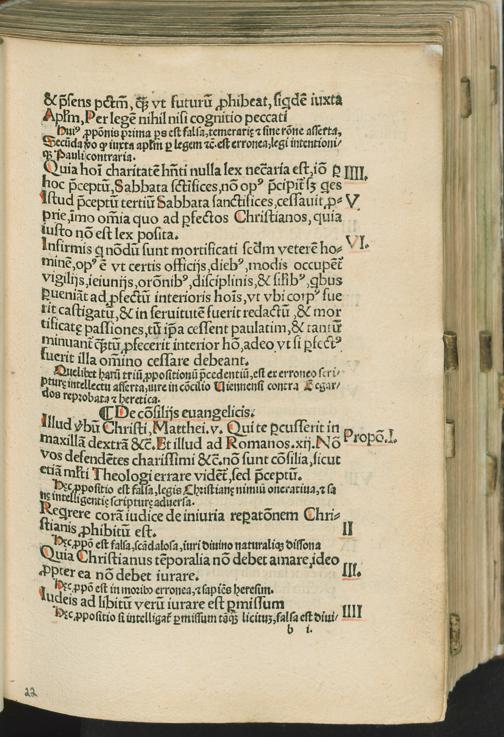 & p̄sens pctm̄, q̃ꝫ vt futurū ꝓhibeat, siqdē iuxta
Apłm, Per legē nihil nisi cognitio peccati
Huiꝰ ꝓpōnis prima ps est falsa, temerarie ⁊ sine rōne asserta,
Secūda ꝟo ꝙ iuxta apłm ꝑ legem ⁊c̄ est erronea, legi intentioni⸗
qꝫ Pauli contraria.
Quia hoī charitatē hn̄ti nulla lex necāria est, iō ꝑ IIII.
hoc p̄ceptū, Sabbata sctīfices, nō opꝰ p̄cipit̄ sꝫ qes
Istud p̄ceptū tertiū Sabbata sanctifices, cessauit ꝓ⸗ V.
prie, imo om̄ia quo ad ꝑfectos Christianos, quia
iusto nō est lex posita.
Infirmis q nōdū sunt mortificati scdm̄ veterē ho⸗ VI.
minē, opꝰ ē vt certis officijs, diebꝰ, modis occupēt
vigilijs, ieiunijs, orōnibꝰ, disciplinis, & silibꝰ, qbus
ꝑueniāt ad ꝑfectū interioris hoīs, vt vbi corpꝰ fue
rit castigatū, & in seruitutē fuerit redactū, & mor
tificatę passiones, tū ip̄a cessent paulatim, & tantū
minuant q̃ꝫtū ꝓfecerit interior hō, adeo vt si ꝑfectꝰ
fuerit illa om̄ino cessare debeant.
Quelibet harū triū ꝓpositionū p̄cedentiū, est ex erroneo scri⸗
pturę intellectu asserta, iure in cōcilio Uiennensi contra Begar⸗
dos reprobata ⁊ heretica.
¶ De cōsilijs euangelicis.
Illud ꝟbū Christi, Matthei. v. Qui te ꝑcusserit in
maxillā dextrā &c̄. Et illud ad Romanos. xij. Nō Propō. I.
vos defendētes charissimi &c̄. nō sunt cōsilia, sicut
etiā ml̄ti Theologi errare vidēt, sed p̄ceptū.
Hęc ꝓpositio est falsa, legis Christianę nimiū oneratiua, ⁊ sa
nę intelligentię scripturę aduersa.
Reqrere corā iudice de iniuria repatōnem Chri⸗
stianis ꝓhibitū est. II
Hęc ꝓpō est falsa, scādalosa, iuri diuino naturaliqꝫ dissona
Quia Christianus tēporalia nō debet amare, ideo
ꝓpter ea nō debet iurare. III.
Hęc ꝓpō est in moribꝰ erronea, ⁊ sapiēs heresim.
Iudeis ad libitū verū iurare est ꝑmissum IIII
Hęc ꝓpositio si intelligat̄ ꝑmissum tāqꝫ licitū, falsa est diui⸗
b i.
22